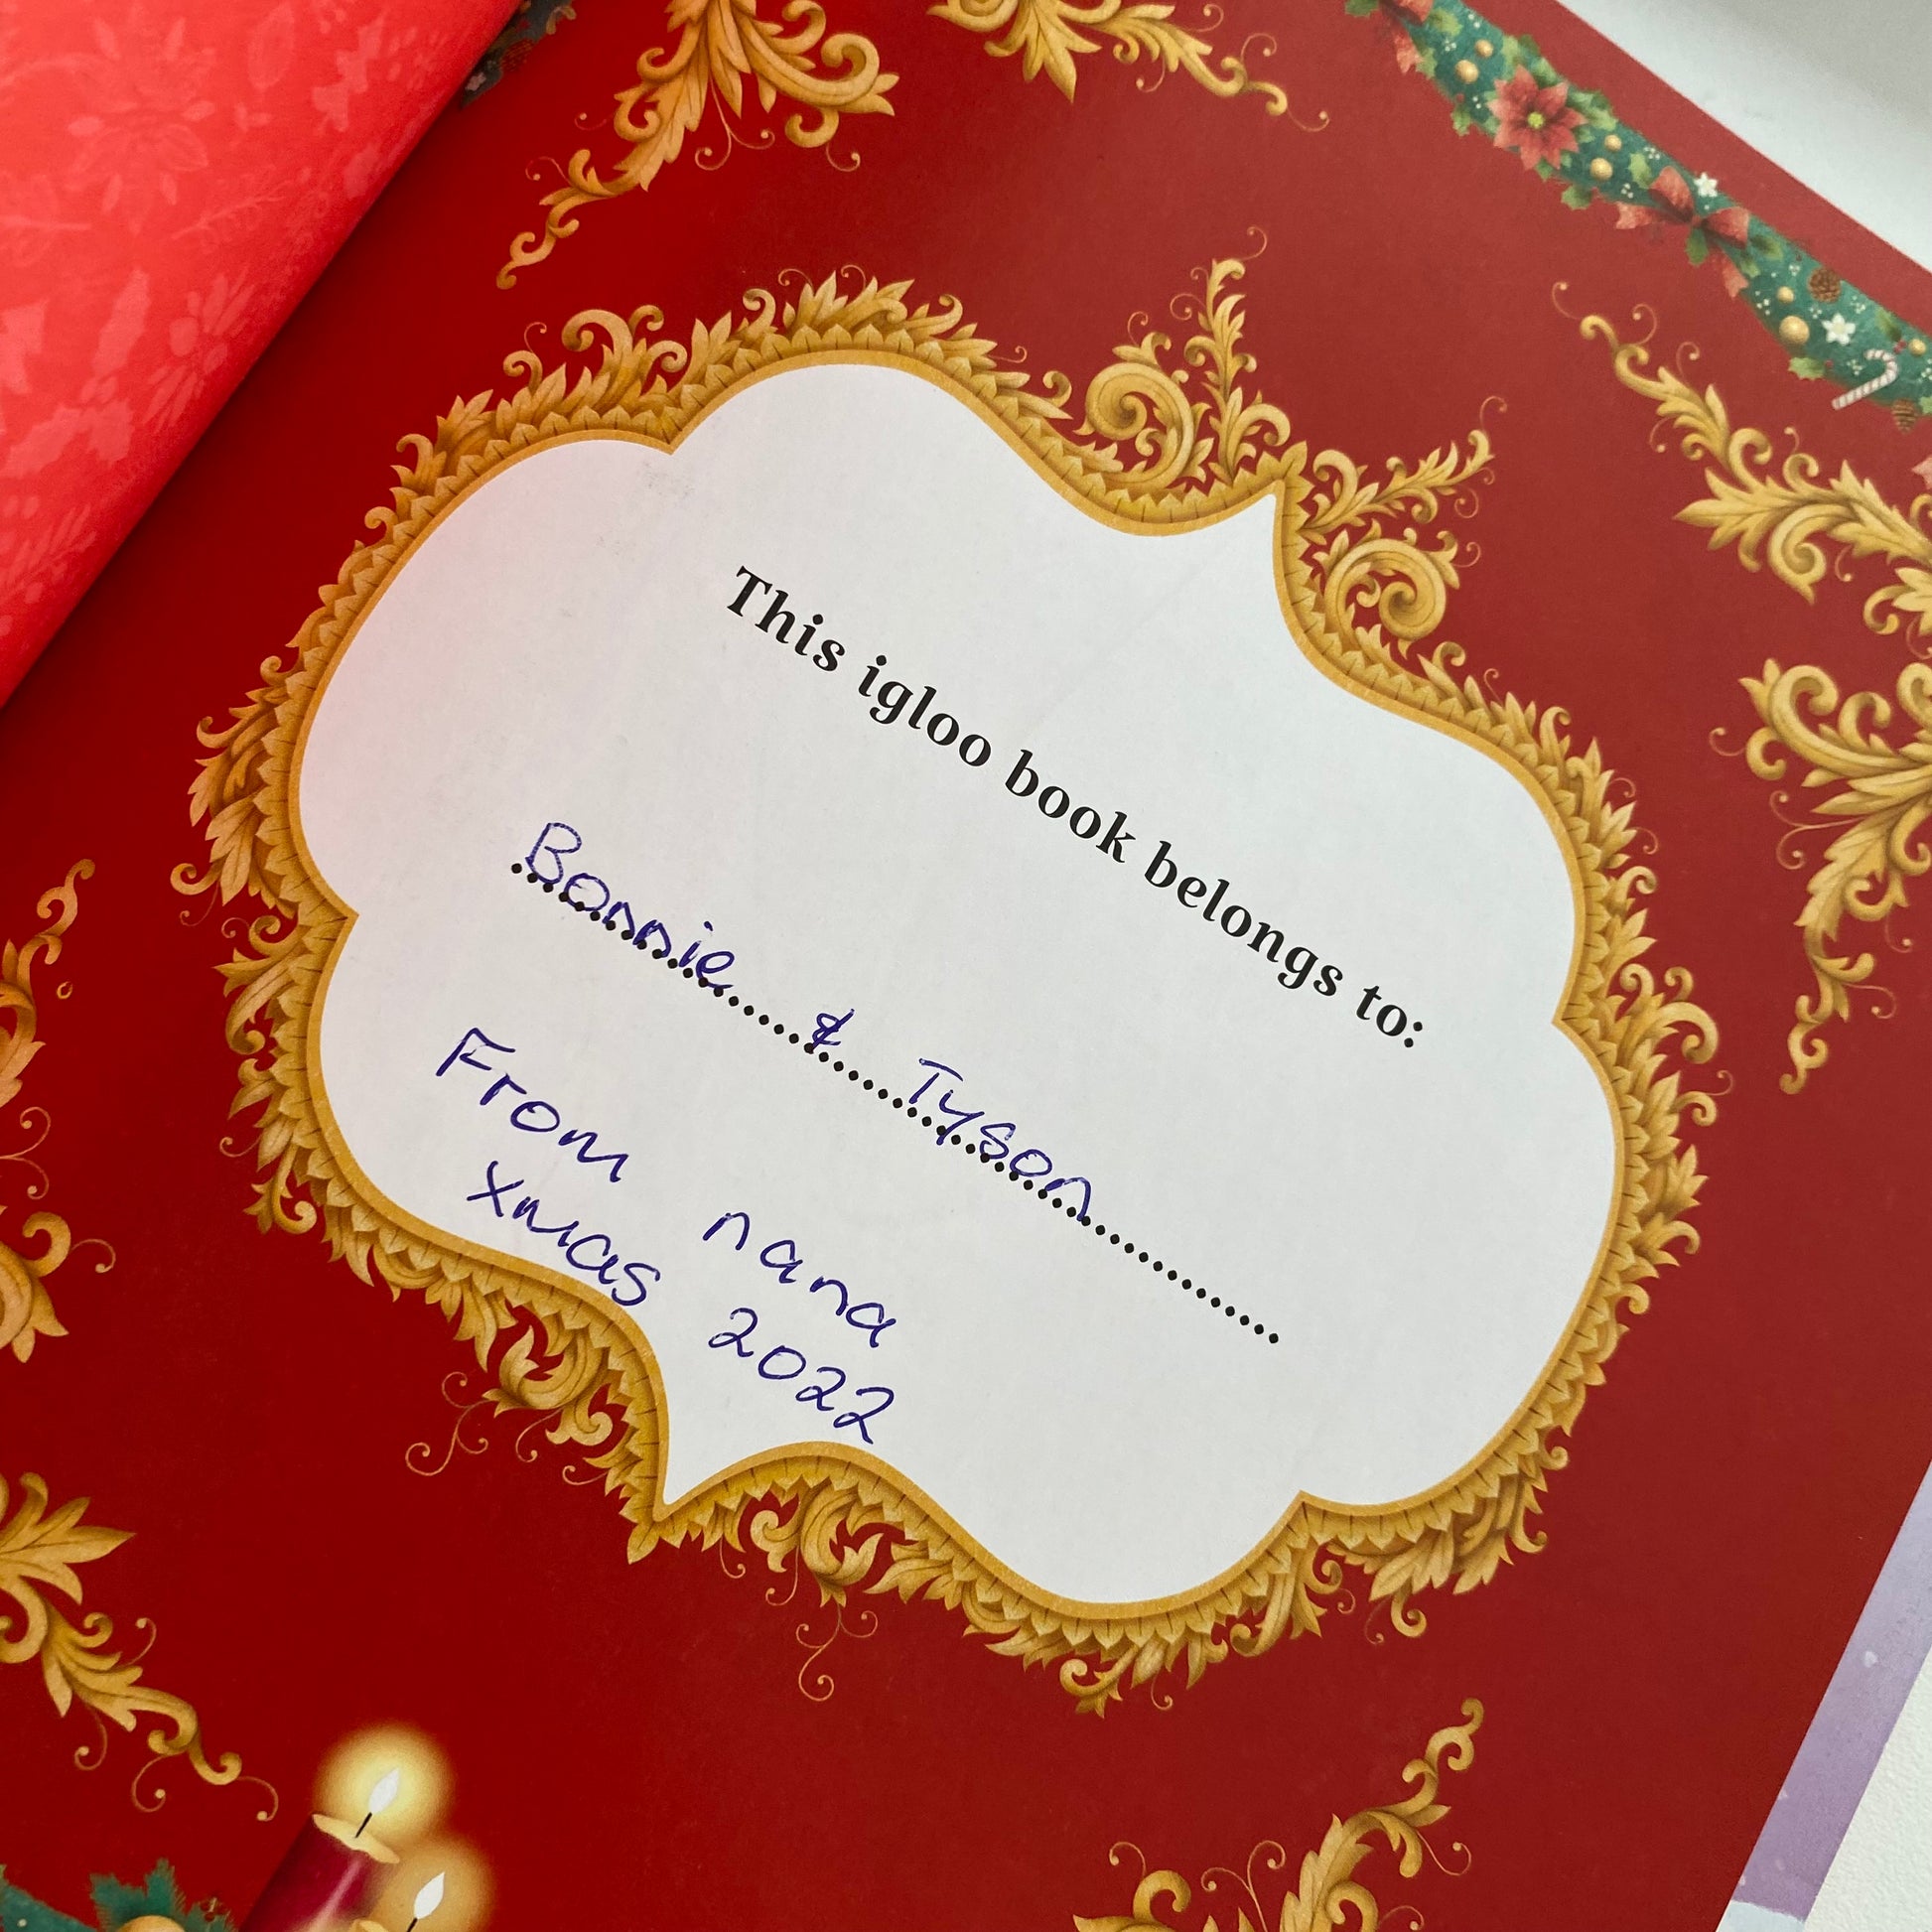 This igloo book belongs to:
Bonnie & Tyson
From nana
xmas 2022